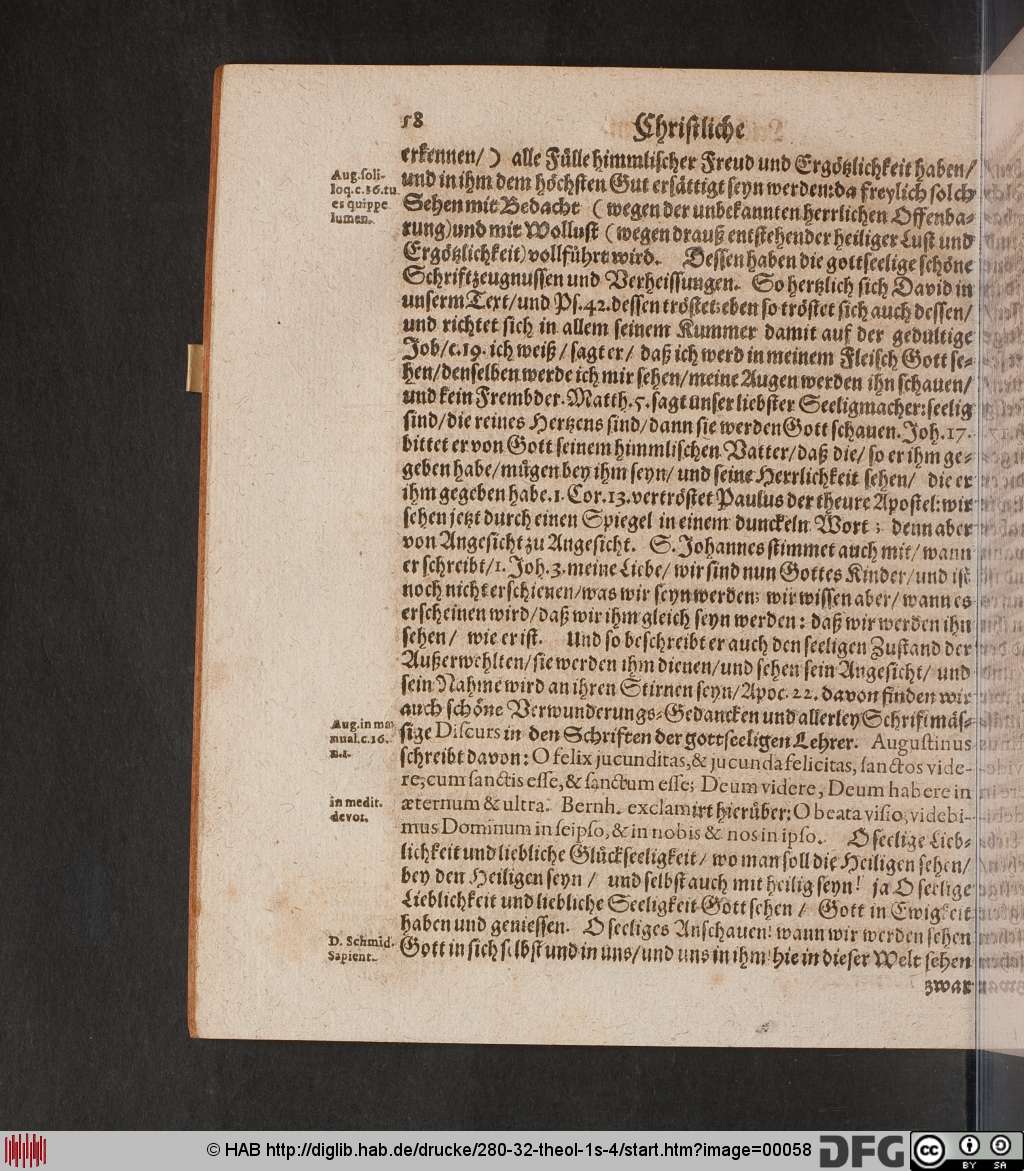 58
Christliche
erkennen/) alle Fülle himmlischer Freud und Ergötzlichkeit haben/
und in ihm dem höchsten Gut ersättigt seyn werden: da freylich solch
Sehen mit Bedacht (wegen der unbekannten herrlichen Offenba-
rung) und mit Wollust (wegen drauß entstehender heiliger Lust und
Ergötzlichkeit) vollführt wird. Dessen haben die gottseelige schöne
Schriftzeugnussen und Verheissungen. So hertzlich sich David in
unserm Text/ und Ps. 42. dessen tröstet: eben so tröstet sich auch dessen/
und richtet sich in allem seinem Kummer damit auf der gedultige
Job/ c. 19. ich weiß/ sagt er/ daß ich werd in meinem Fleisch Gott se-
hen/ denselben werde ich mir sehen/ meine Augen werden ihn schauen/
und kein Frembder. Matth. 5. sagt unser liebster Seeligmacher: seelig
sind/ die reines Hertzens sind/ dann sie werden Gott schauen. Joh. 17.
bittet er von Gott seinem himmlischen Vatter/ daß die/ so er ihm ge-
geben habe/ mügen bey ihm seyn/ und seine Herrlichkeit sehen/ die er
ihm gegeben habe. 1. Cor. 13. vertröstet Paulus der theure Apostel: wir
sehen jetzt durch einen Spiegel in einem dunckeln Wort; denn aber
von Angesicht zu Angesicht. S. Johannes stimmet auch mit/ wann
er schreibt/ 1. Joh. 3. meine Liebe/ wir sind nun Gottes Kinder/ und ist
noch nicht erschienen/ was wir seyn werden; wir wissen aber/ wann es
erscheinen wird/ daß wir ihm gleich seyn werden: daß wir werden ihn
sehen/ wie er ist. Und so beschreibt er auch den seeligen Zustand der
Außerwehlten/ sie werden ihm dienen/ und sehen sein Angesicht/ und
sein Nahme wird an ihren Stirnen seyn/ Apoc. 22. davon finden wir
auch schöne Verwunderungs-Gedancken und allerley Schriftmäs-
sige Discurs in den Schriften der gottseeligen Lehrer. Augustinus
schreibt davon: O felix jucunditas, & jucunda felicitas, sanctos vide-
re, cum sanctis esse, & sanctum esse; Deum videre, Deum habere in
æternum & ultra. Bernh. exclamirt hierüber: O beata visio, videbi-
mus Dominum in seipso, & in nobis & nos in ipso. O seelige Lieb-
lichkeit und liebliche Glückseeligkeit/ wo man soll die Heiligen sehen/
bey den Heiligen seyn/ und selbst auch mit heilig seyn! ja O seelige
Lieblichkeit und liebliche Seeligkeit Gott sehen/ Gott in Ewigkeit
haben und geniessen. O seeliges Anschauen! wann wir werden sehen
Gott in sich selbst und in uns/ und uns in ihm! hie in dieser Welt sehen
zwar
Aug. soli-
loq. c. 36. tu
es quippe
lumen.
Aug. in ma-
nual. c. 16.
n. 1.
in medit.
devot.
D. Schmid.
Sapient.
© HAB http://diglib.hab.de/drucke/280-32-theol-1s-4/start.htm?image=00058
DFG
cc
BY
SA